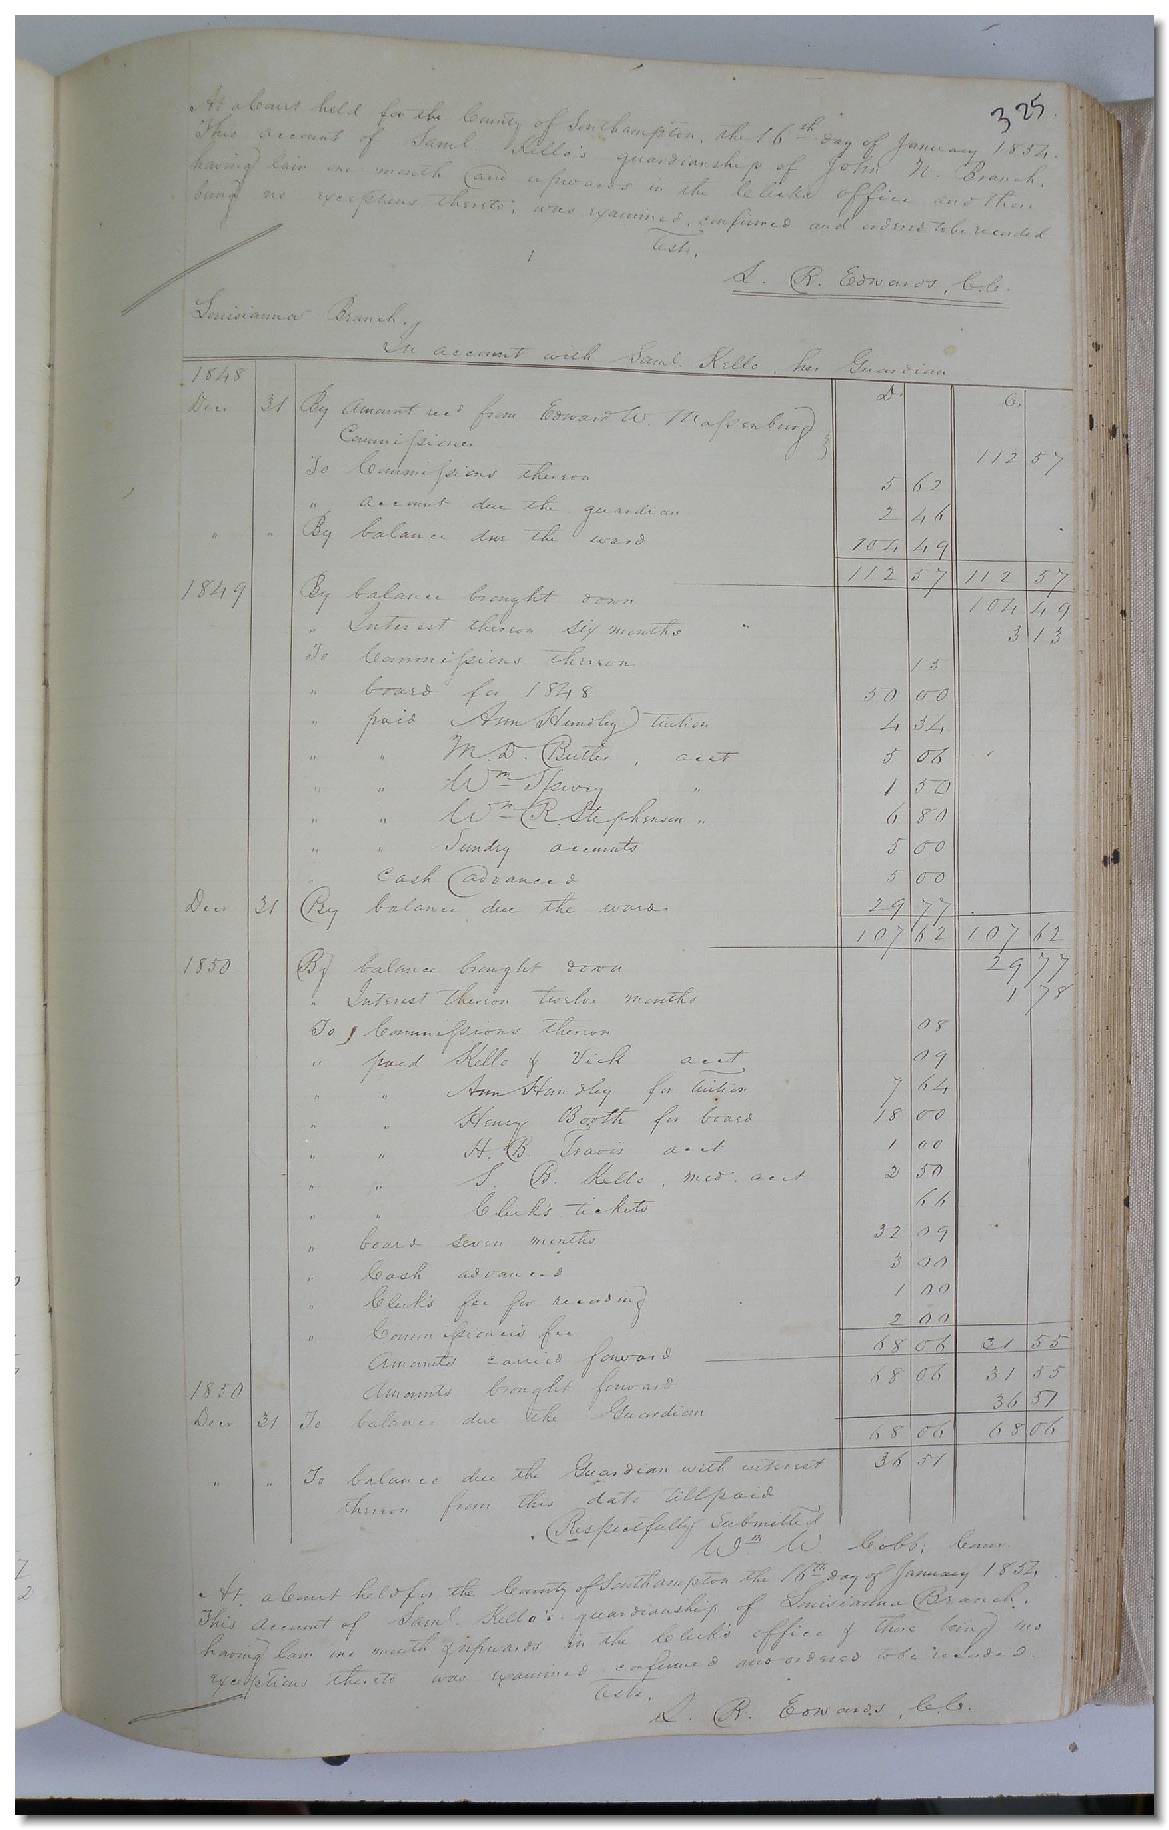 325.
At a Court held for the County of Southampton, the 16th day of January 1854.
This account of Saml. Kello's guardianship of John N. Branch,
having lain one month and upwards in the Clerks office and there
being no exceptions thereto, was examined, confirmed and ordered to be recorded
Teste,
L. R. Edwards, C.C.
Louisianna Branch,
In account with Saml. Kello, her Guardian
1848 D. C.
Decr 31 By Amount recd from Edward W. Massenburg
Commissioner 112 57
To Commissions thereon 5 62
" account due the guardian 2 46
" " By balance due the ward 104 49
112 57 112 57
1849 By balance brought down 104 49
" Interest thereon six months " 3 13
To Commissions thereon 15
" board for 1848 50 00
" paid Ann Hundley tuition 4 34
" " M. D. Butler, acct 5 06
" " Wm Spivey " 1 50
" " Wm R. Stephenson " 6 80
" " Sundry accounts 5 00
" Cash advanced 5 00
Decr 31 By balance due the ward 29 77
107 62 107 62
1850 By balance brought down 29 77
" Interest thereon twelve months 1 78
To Commissions thereon 08
" paid Kello & Vick acct 09
" " Ann Hundley for tuition 7 64
" " Henry Booth for board 18 00
" " H. B. Travis acct 1 00
" " S. B. Kello, med. acct 2 50
" " Clerk's tickets 66
" board seven months 32 09
" Cash advanced 3 00
" Clerk's fee for recording 1 00
" Commissioners fee 2 00
Amounts carried forward 68 06 31 55
1850 Amounts brought forward 68 06 31 55
Decr 31 To balance due the Guardian 36 51
68 06 68 06
" " To balance due the Guardian with interest 36 51
thereon from this date till paid
Respectfully Submitted
Wm W. Cobb, Comr.
At a Court held for the County of Southampton the 16th day of January 1854
This account of Saml. Kello's guardianship of Louisianna Branch,
having lain one month & upwards in the Clerk's office & there being no
exceptions thereto was examined confirmed and ordered to be recorded.
Teste,
L. R. Edwards, C.C.